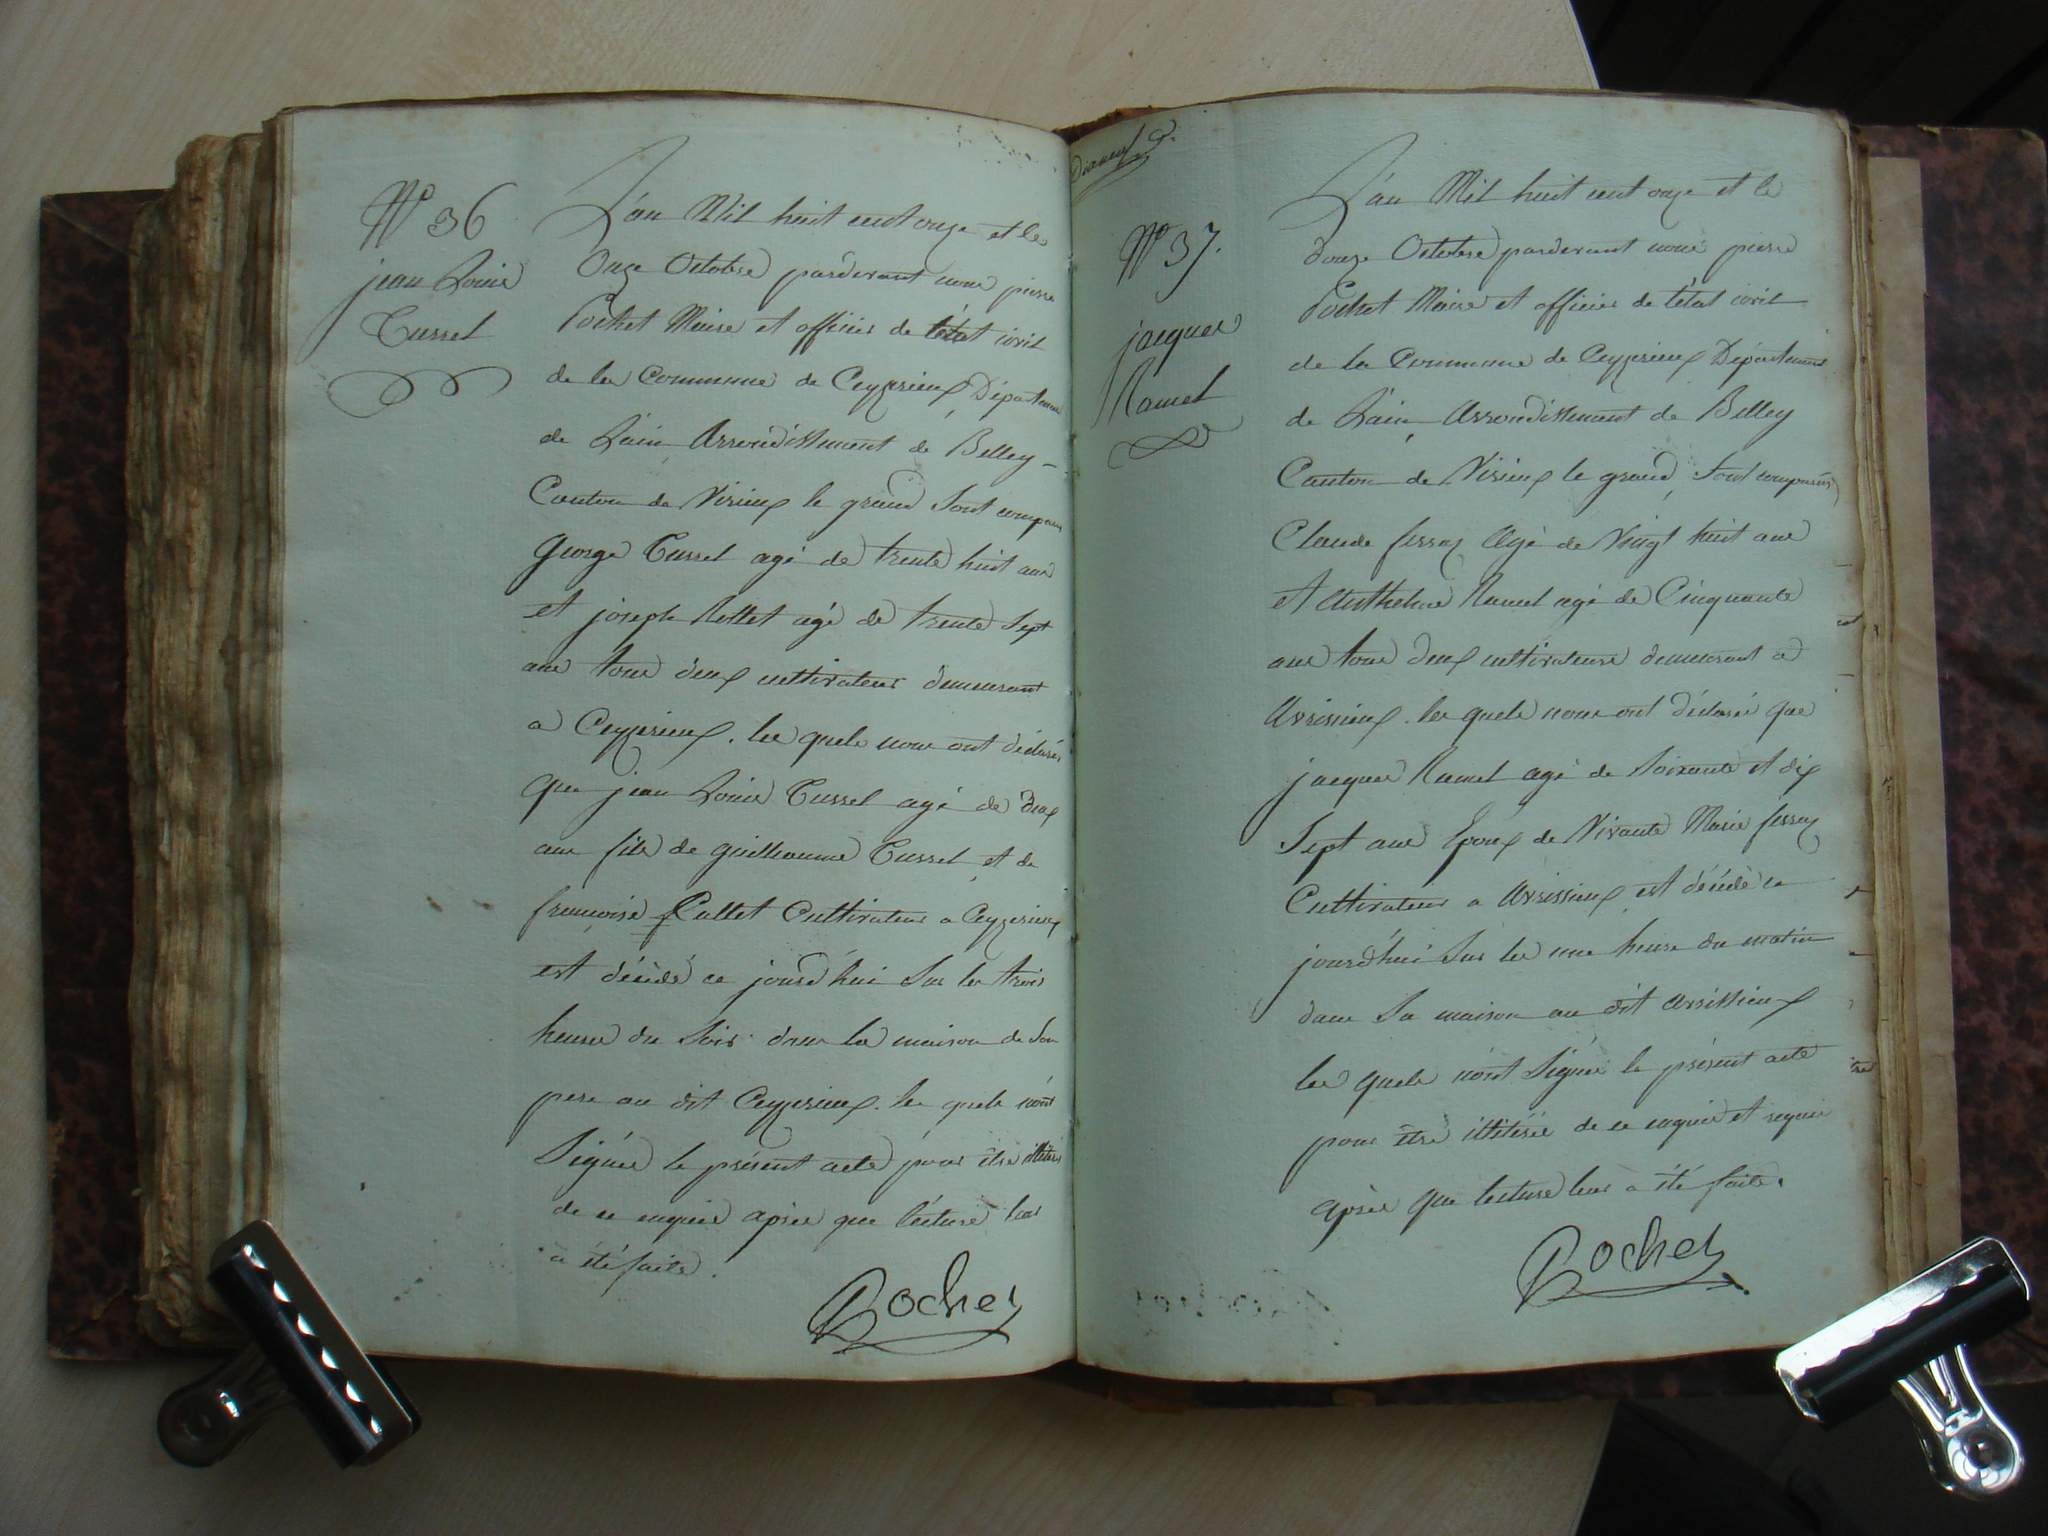 N° 36
jean Louis
Cussel
L'an Mil huit cent onze et le
Onze Octobre pardevant nous pierre
Rochet Maire et officier de l'état civil
de la Commune de Ceyzerieux Département
de L'ain Arrondissement de Belley
Canton de Virieux le grand Sont comparus
George Cussel agé de trente huit ans
et joseph Rostet agé de trente Sept
ans tous deux cultivateurs demeurant
a Ceyzerieux. les quels nous ont déclarés
que jean Louis Cussel agé de deux
ans fils de guilleaume Cussel et de
francoise Callet Cultivateur a Ceyzerieux
est décédé ce jourd'hui Sur les trois
heures du Soir dans la maison de Son
pere au dit Ceyzerieux. les quels n'ont
Signés le présent acte pour être illitérés
de ce enquis après que lécture leur
a été faite.
Rochet
N° 37.
jacques
Ramel
L'an Mil huit cent onze et le
douze Octobre pardevant nous pierre
Rochet Maire et officier de l'état civil
de la Commune de Ceyzerieux Département
de L'ain Arrondissement de Belley
Canton de Virieux le grand Sont comparus
Claude ferraz Agé de Vingt huit ans
et Anthelme Ramel agé de Cinquante
ans tous deux cultivateurs demeurant a
Avrissieux. les quels nous ont déclaré que
jacques Ramel agé de Soixante et dix
Sept ans Epoux de Vivante Marie ferraz
Cultivateur a Avrissieux est décédé ce
jourd'hui Sur les une heure du matin
dans Sa maison au dit Avrissieux
les quels n'ont Signés le présent acte
pour être illitérés de ce enquis et requis
après que lecture leur a été faite.
Rochet